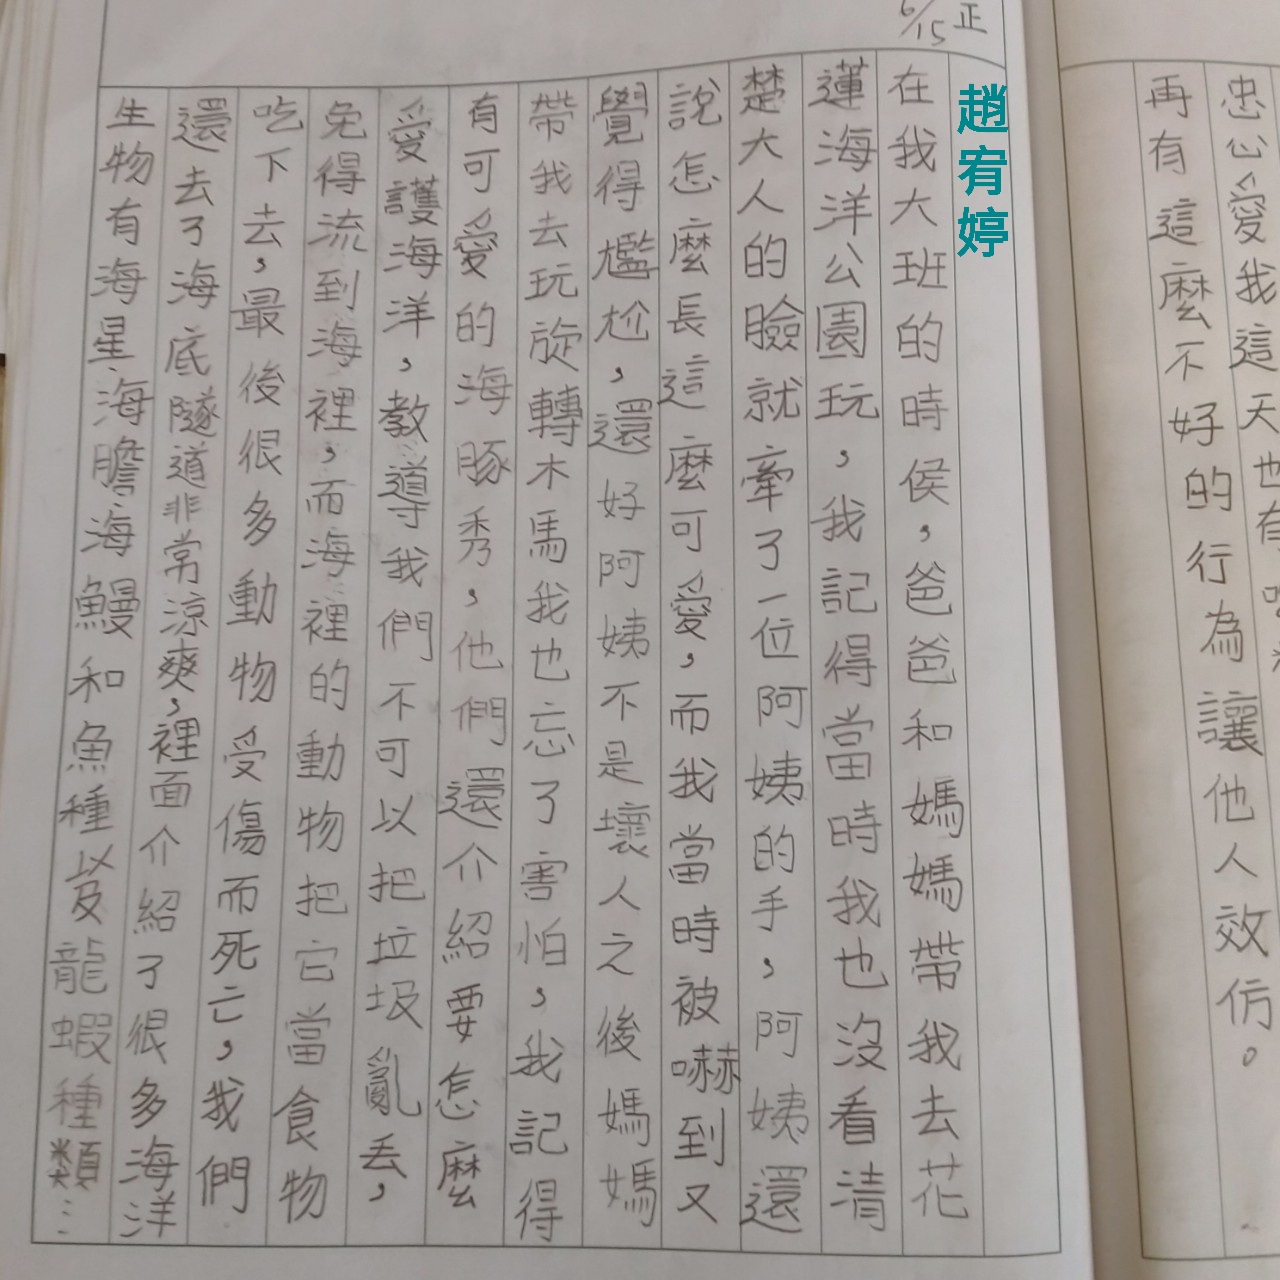 忠心愛我這天也有
再有這麼不好的行為讓他人效仿。
6/15 正
趙宥婷
在我大班的時侯，爸爸和媽媽帶我去花
蓮海洋公園玩，我記得當時我也沒看清
楚大人的臉就牽了一位阿姨的手，阿姨還
說怎麼長這麼可愛，而我當時被嚇到又
覺得尷尬，還好阿姨不是壞人之後媽媽
帶我去玩旋轉木馬我也忘了害怕，我記得
有可愛的海豚秀，他們還介紹要怎麼
愛護海洋，教導我們不可以把垃圾亂丟，
免得流到海裡，而海裡的動物把它當食物
吃下去，最後很多動物受傷而死亡，我們
還去了海底隧道非常涼爽，裡面介紹了很多海洋
生物有海星、海膽、海鰻和魚種以及龍蝦種類…